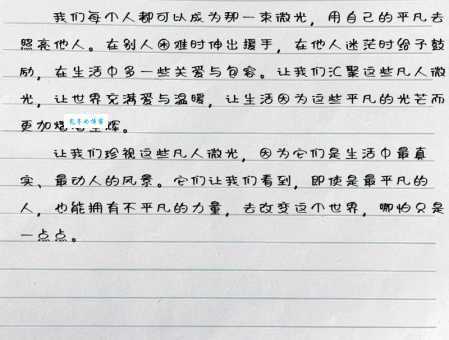 我们每个人都可以成为那一束微光，用自己的平凡去
照亮他人。在别人困难时伸出援手，在他人迷茫时给予鼓
励，在生活中多一些关爱与包容。让我们汇聚这些凡人微
光，让世界充满爱与温暖，让生活因为这些平凡的光芒而
更加熠熠生辉。
让我们珍视这些凡人微光，因为它们是生活中最真
实、最动人的风景。它们让我们看到，即使是最平凡的
人，也能拥有不平凡的力量，去改变这个世界，哪怕只是
一点点。